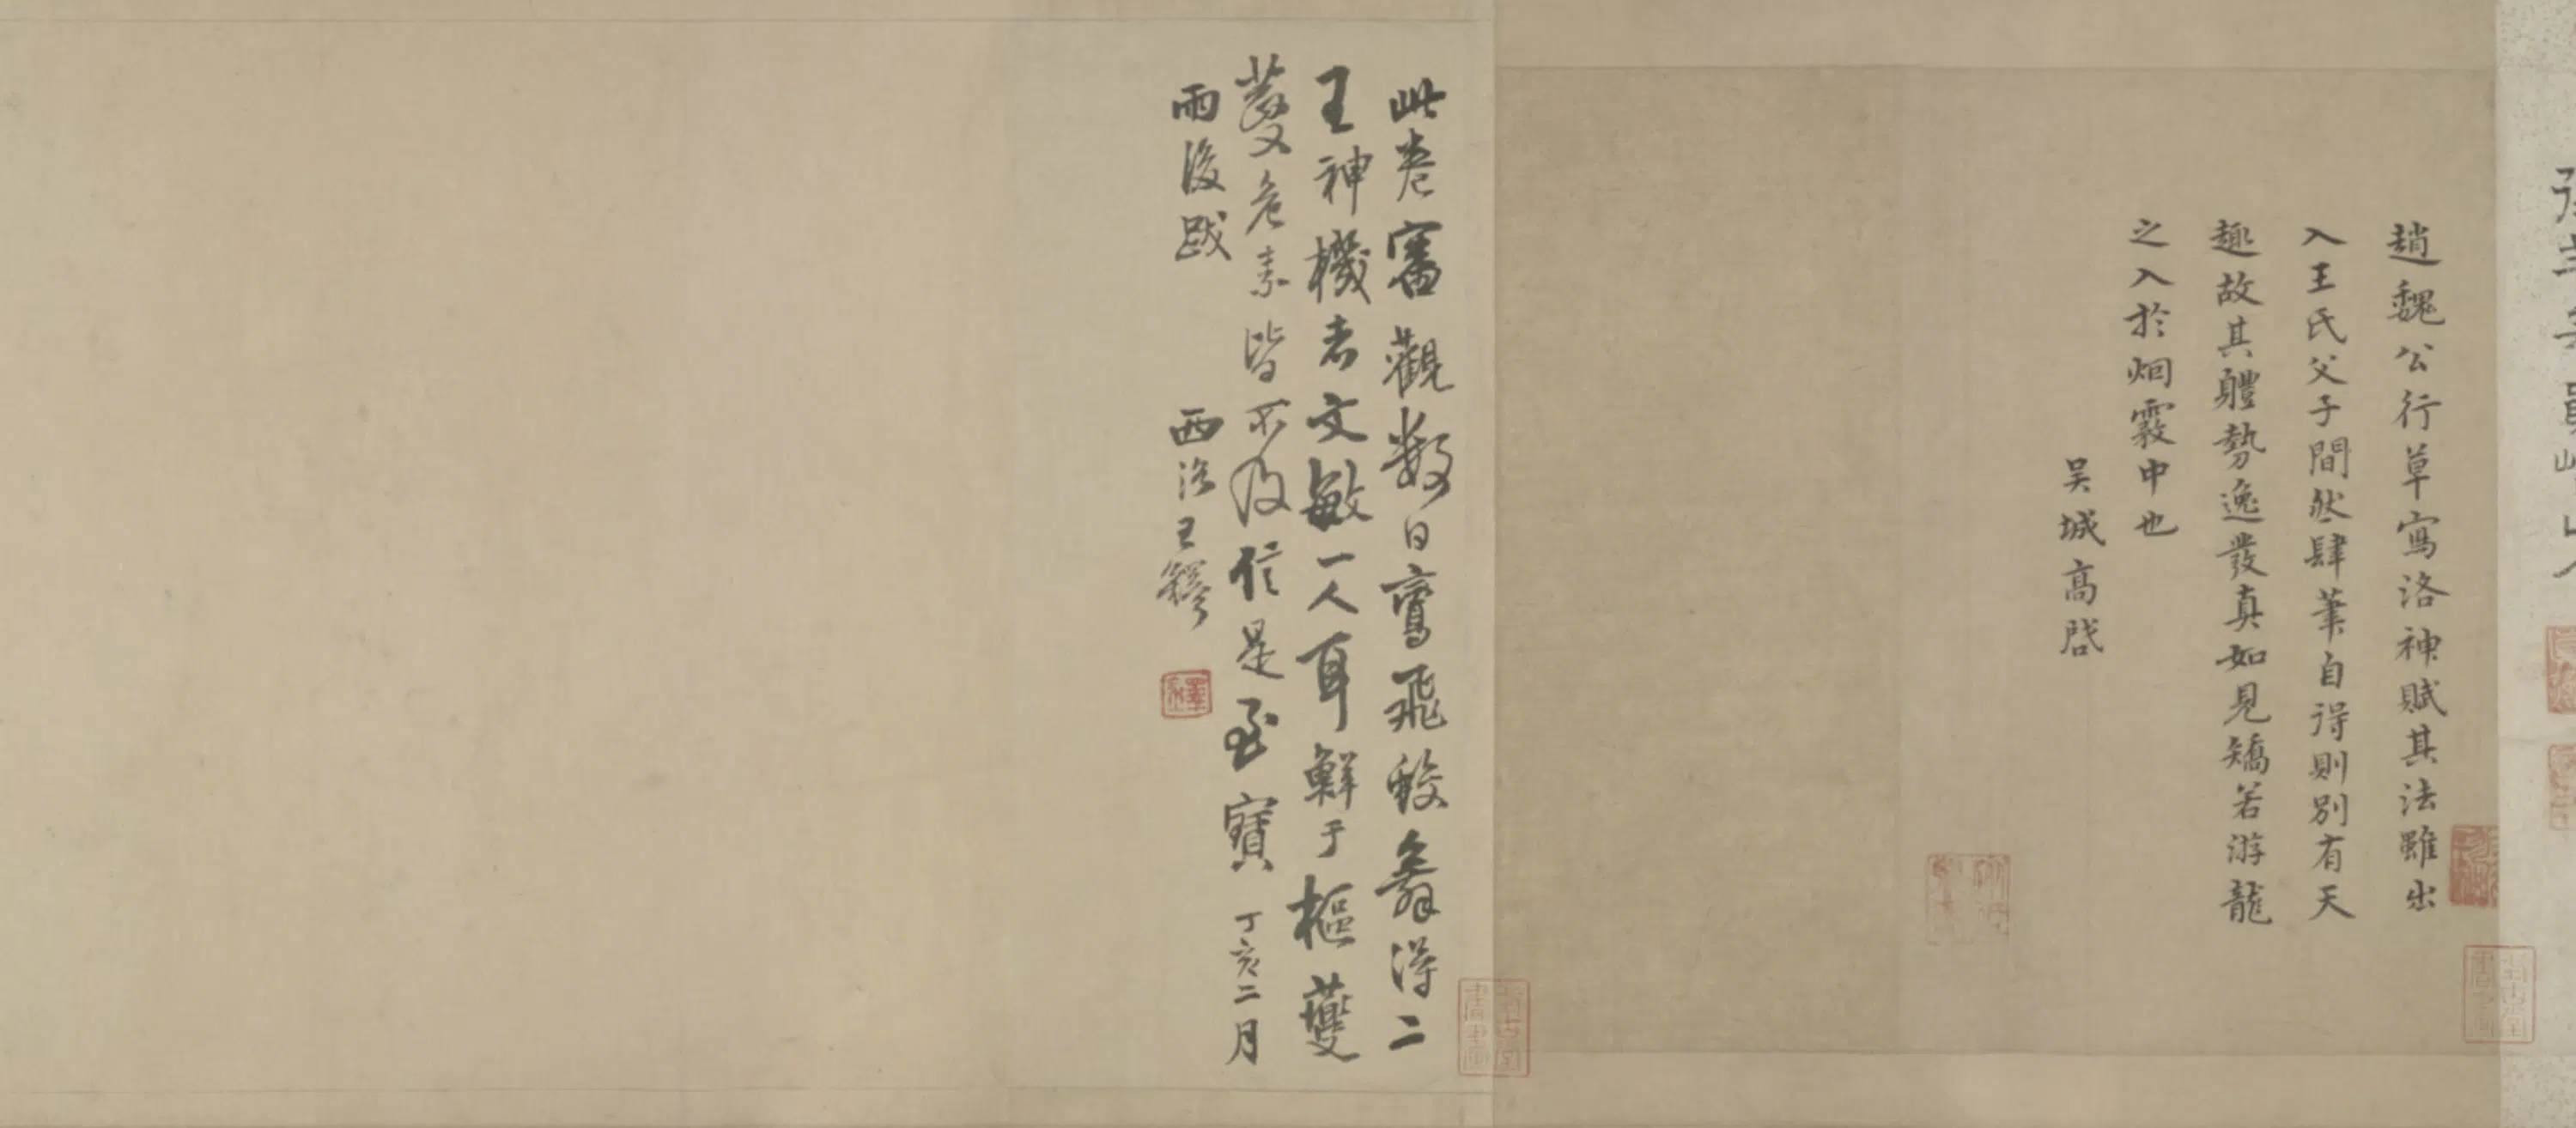 趙魏公行草寫洛神賦其法雖出
入王氏父子間然肆筆自得則別有天
趣故其軆勢逸發真如見矯若游龍
之入於烟霧中也
吴城高啓
此卷審觀数日鸞飛蛟舞得二
王神機者文敏一人耳鮮于樞蘷
蘷危素皆不及信是至寶 丁亥二月
雨後跋 西洛王鐸